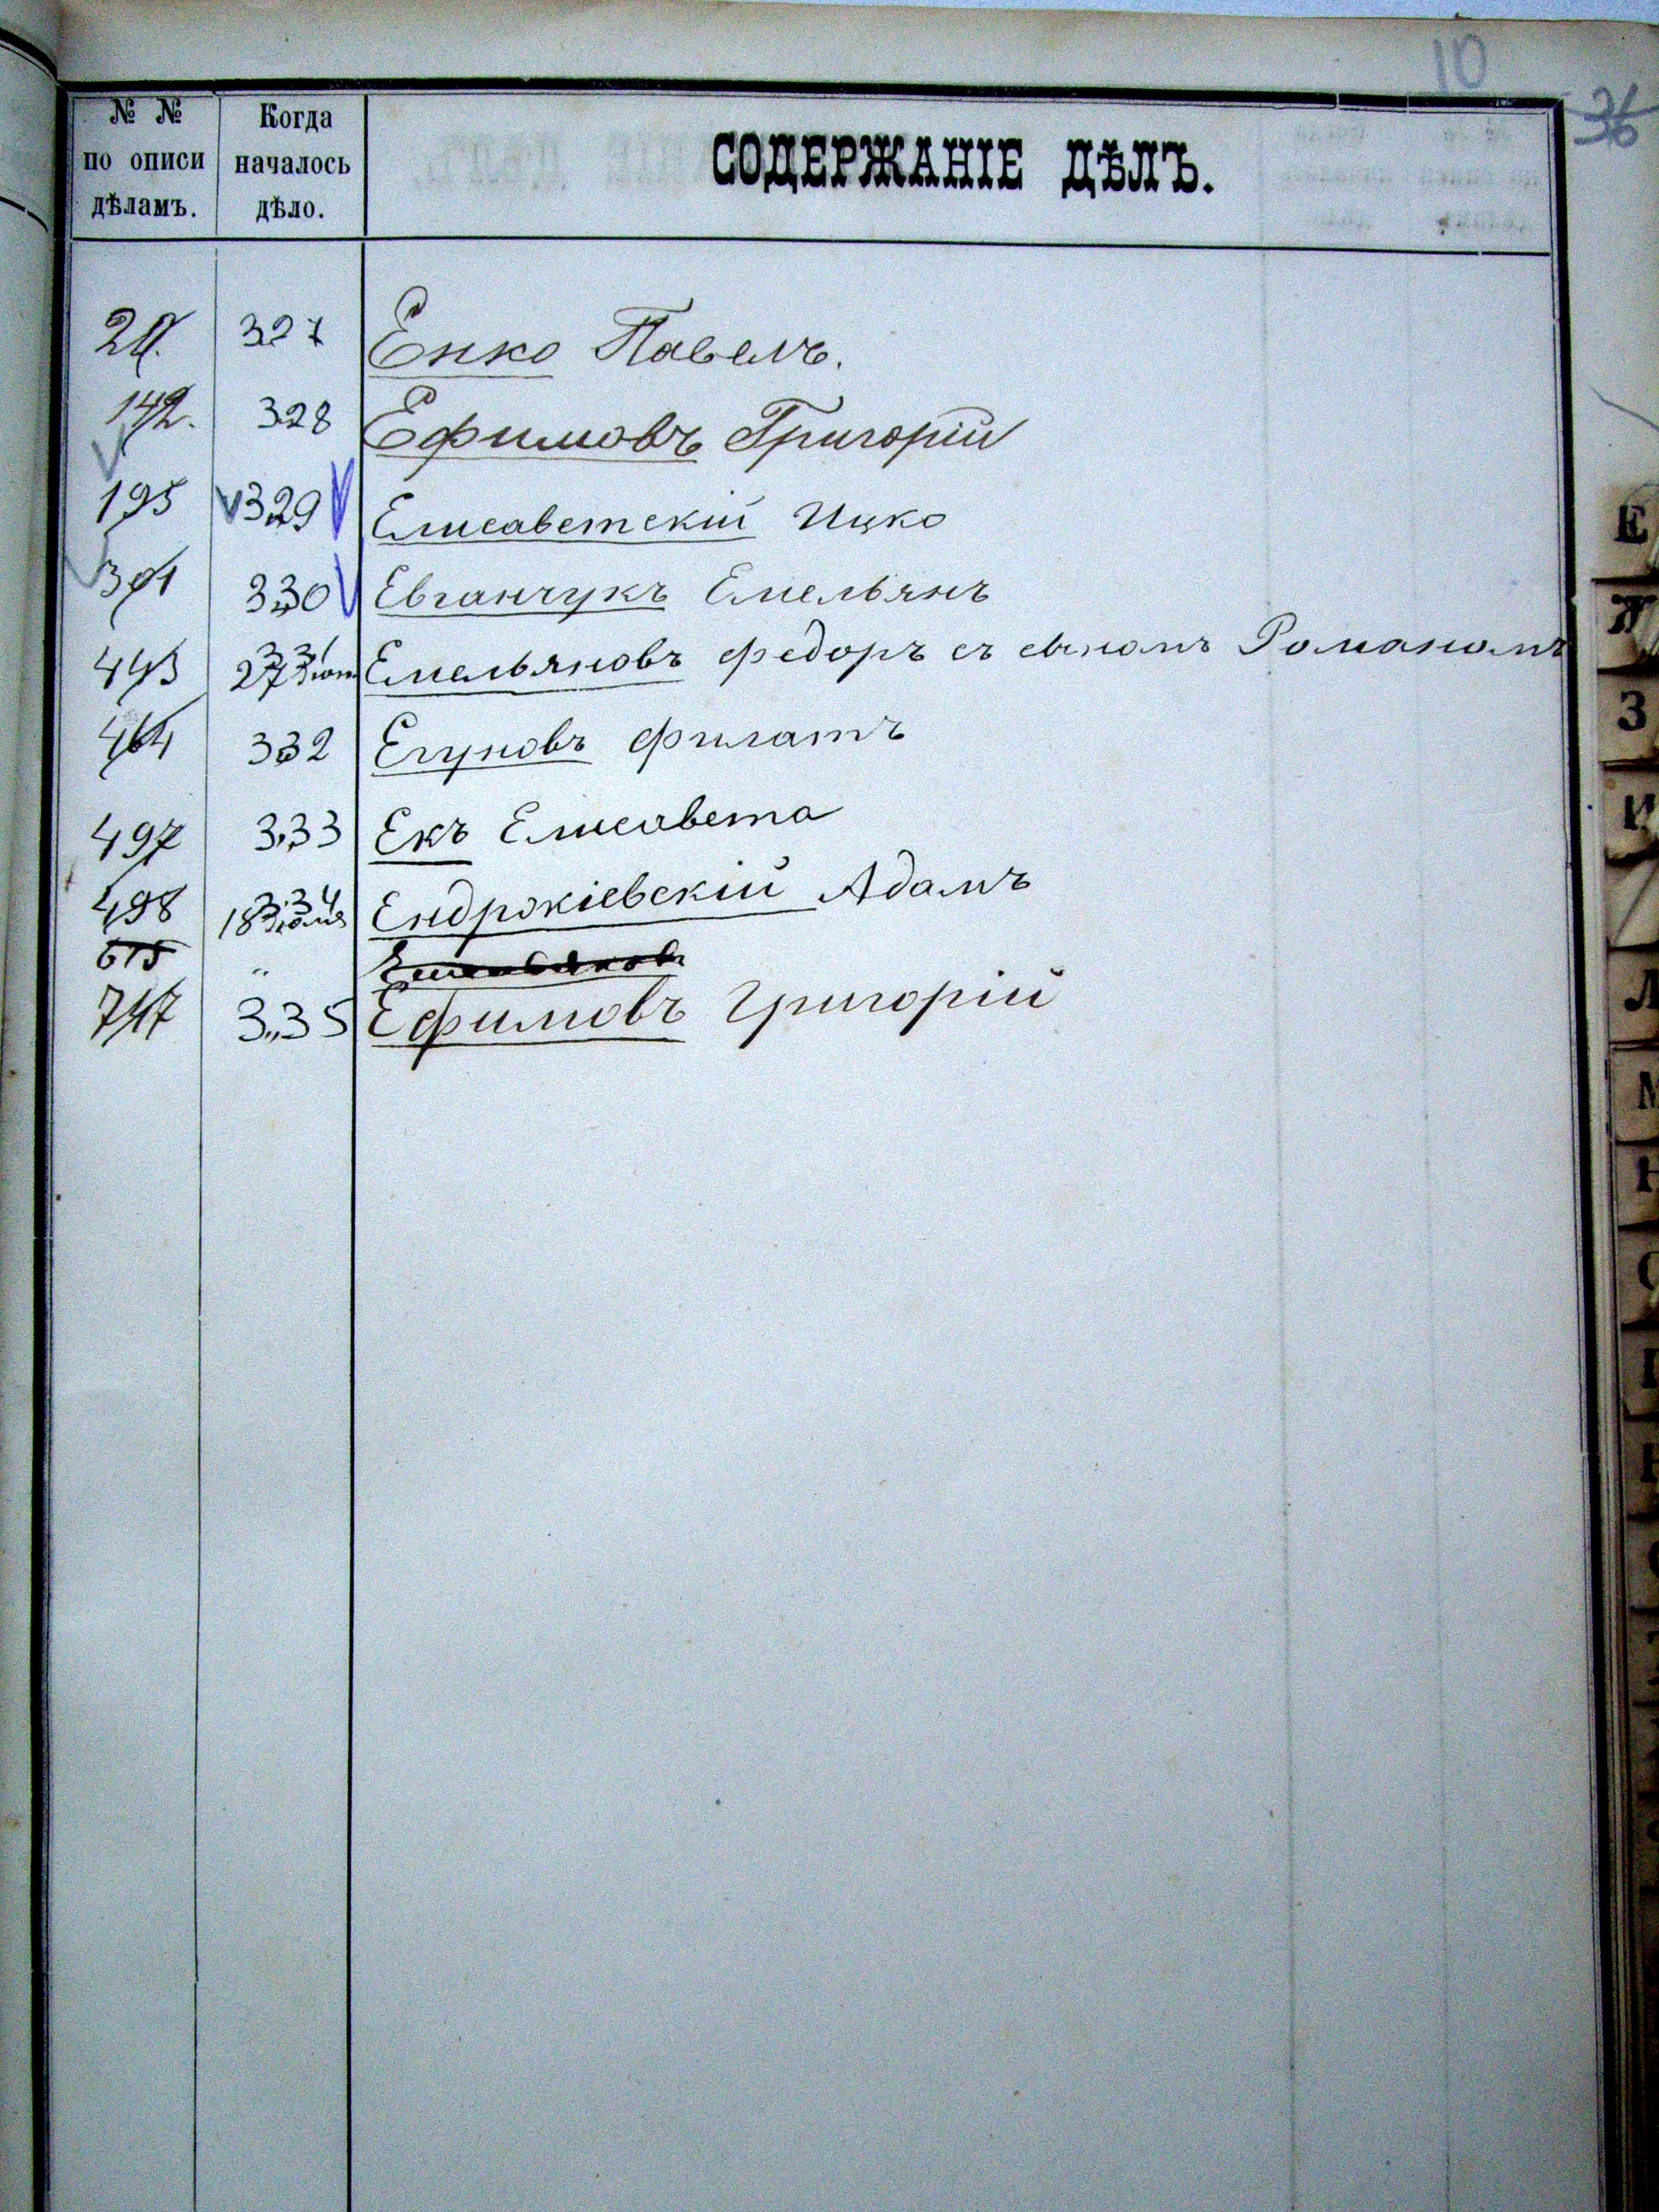 10
36
№ № по описи дѣламъ.
Когда началось дѣло.
СОДЕРЖАНІЕ ДѢЛЪ.
327 Енко Павелъ.
142. 328 Ефимовъ Григорій
195 329 Елисаветскій Ицко
330 Евганчукъ Емельянъ
443 331 Емельяновъ Федоръ съ сыномъ Романомъ
464 332 Егуновъ Филатъ
497 333 Екъ Елисавета
498 334 Ендрокіевскій Адамъ
615 " Емельяновъ
747 335 Ефимовъ Григорій
Е
З
И
Л
М
Н